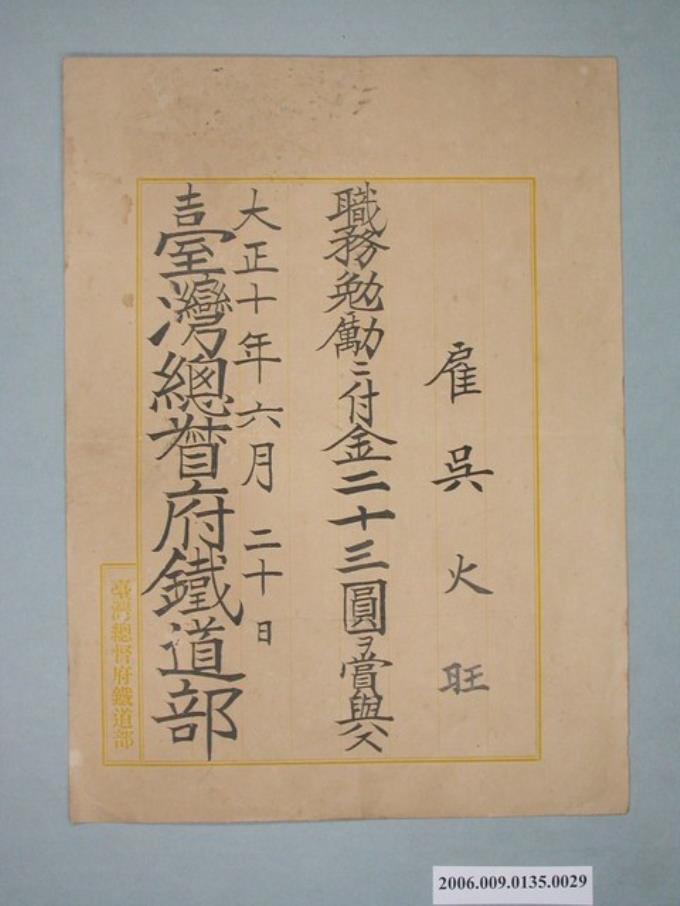 雇 吳火旺
職務勉勵ニ付金二十三圓ヲ賞與ス
大正十年六月二十日
臺灣總督府鐵道部
臺灣總督府鐵道部
2006.009.0135.0029